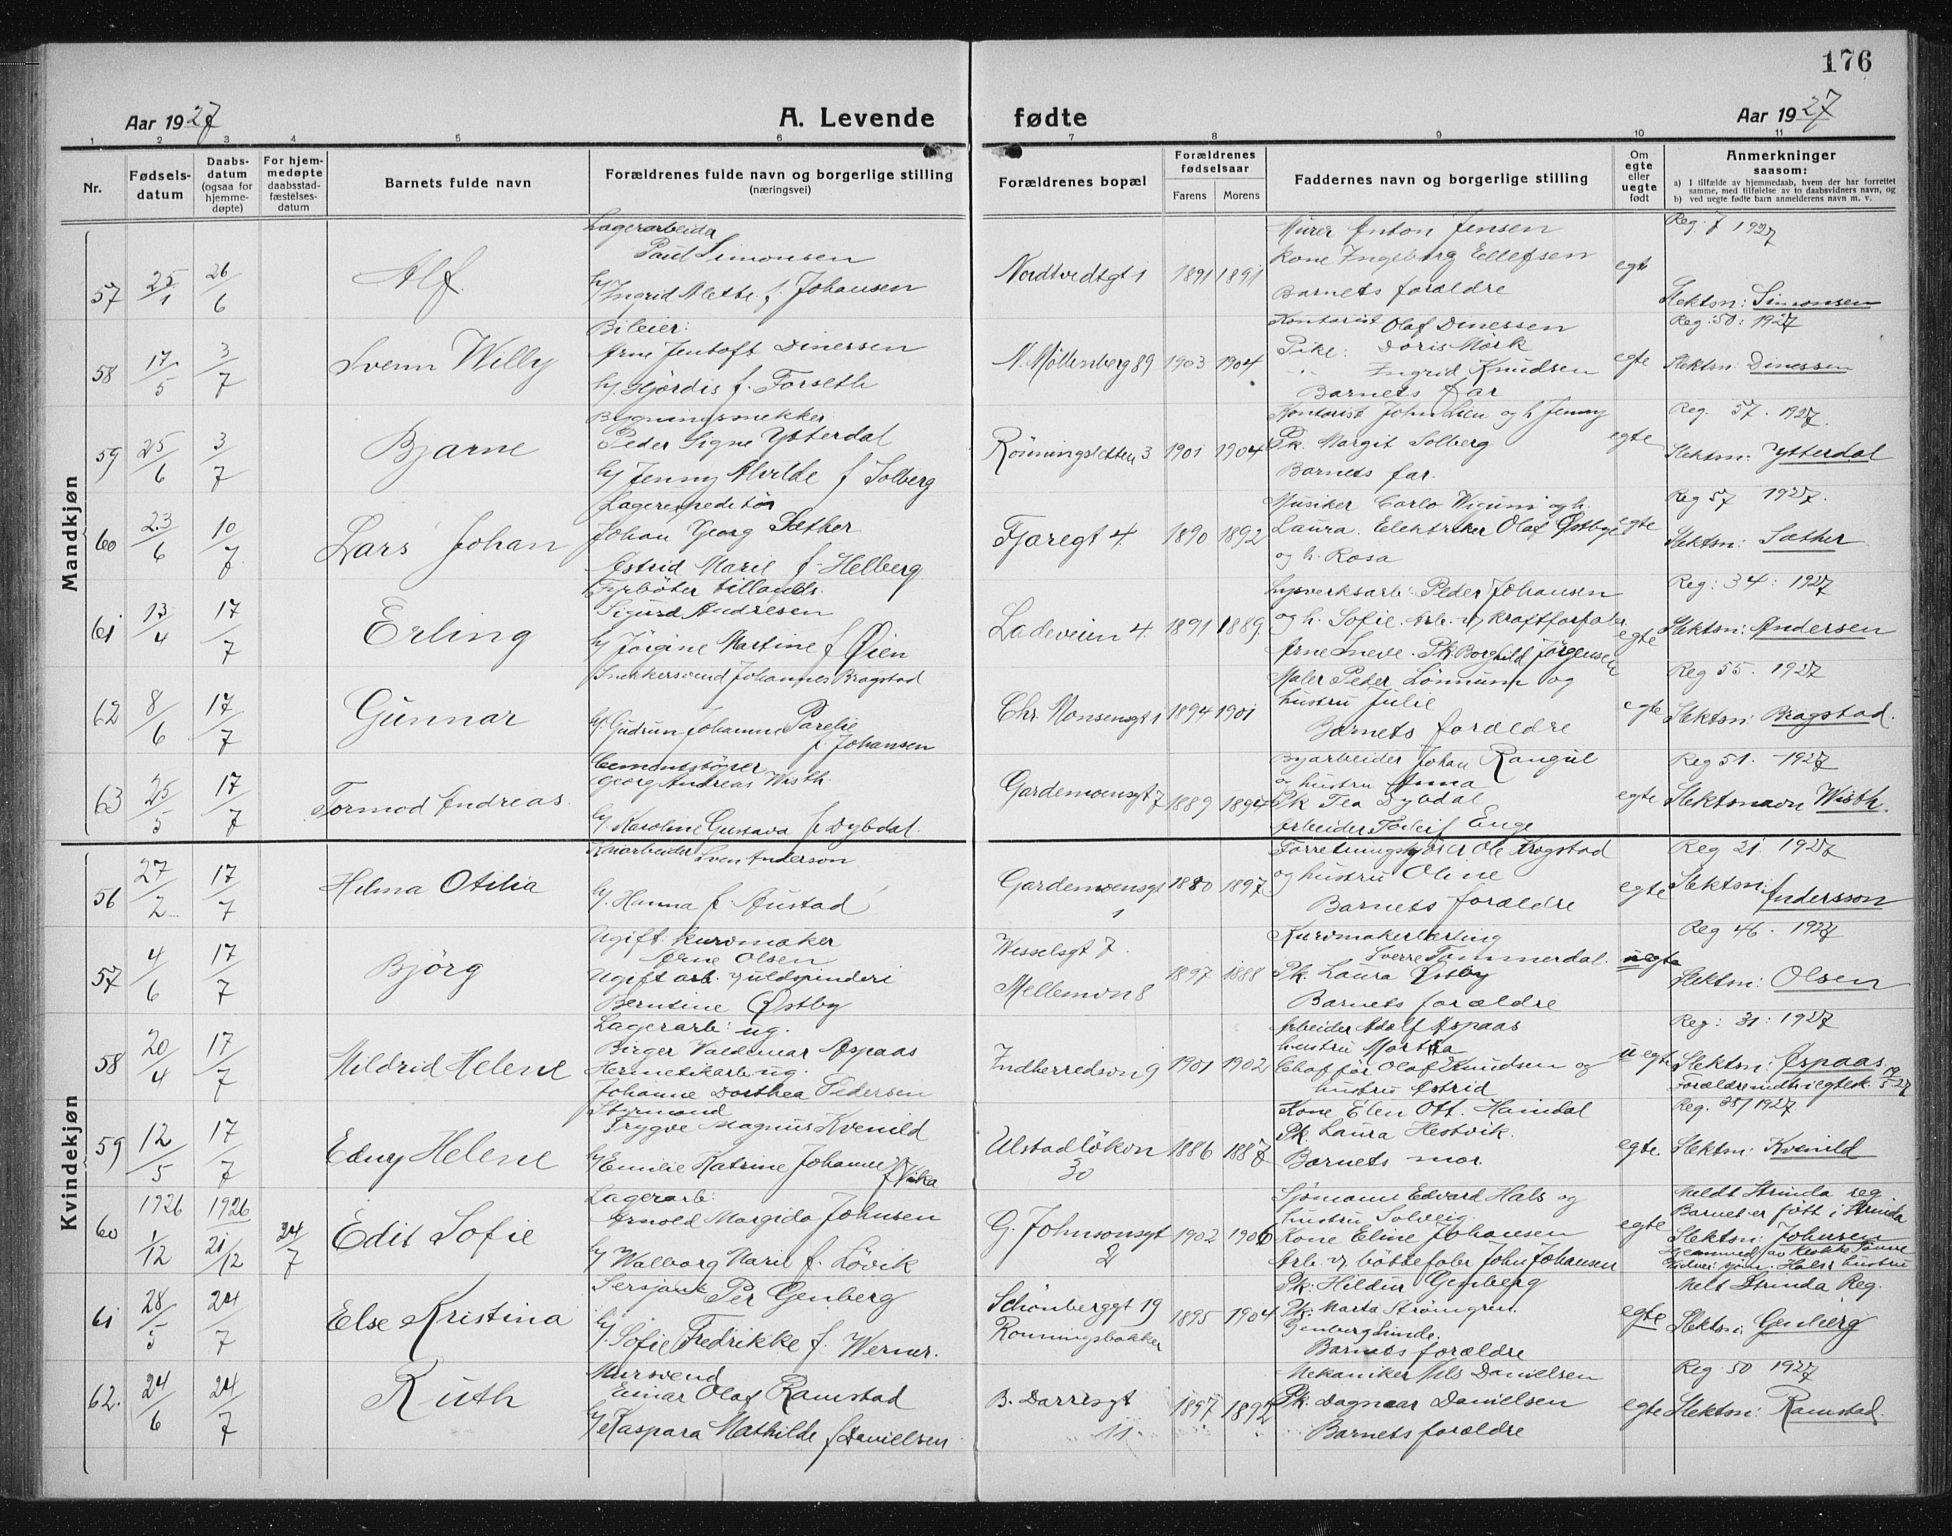 176
Aar 1927
A. Levende fødte
Aar 1927
1 2 3 4 5 6 7 8 9 10 11
Nr.
Fødsels-
datum
Daabs-
datum
(ogsaa for
hjemme-
døpte)
For hjem-
medøpte
daabsstad-
fæstelses-
datum
Barnets fulde navn
Forældrenes fulde navn og borgerlige stilling
(næringsvei)
Forældrenes bopæl
Forældrenes
fødselsaar
Farens Morens
Faddernes navn og borgerlige stilling
Om
egte
eller
uegte
født
Anmerkninger
saasom:
a) I tilfælde av hjemmedaab, hvem der har forrettet
samme, med tilføielse av to daabsvidners navn, og
b) ved uegte fødte barn anmelderens navn m. v.
Mandkjøn
57 25/1 26/6
Alf
Lagerarbeider
Paul Simonsen
h/ Ingrid Alette f. Johansen
Nordtvedtgt 1
1891 1891
Murer Anton Jensen
Kone Ingeborg Ellefsen
Barnets forældre
egte
Reg. 7 1927
Slektsn: Simonsen
58 17/5 3/7
Svenn Willy
Bileier:
Arne Jentoft Dinessen
h/ Hjördis f. Forseth
N. Möllenberg 89
1903 1904
Kontorist Olaf Dinessen
Pike: Doris Mörk
" Ingrid Knudsen
Barnets far
egte
Reg: 50: 1927
Slektsn: Dinessen
59 25/6 3/7
Bjarne
Bygningssnekker
Peder Signe Ytterdal
h/ Jenny Alvilde f Solberg
Rönningsletten 3
1901 1904
Kontorist John Lien og h Jenny
Pk. Margit Solberg
Barnets far.
egte
Reg. 57. 1927.
Slektsn: Ytterdal
60 23/6 10/7
Lars Johan
Lagerexpeditör
Johan Georg Sæther
Astrid Marie f. Helberg
Fjæregt 4.
1890 1892
Musiker Carlo Wigum og h.
Laura. Elektriker Olaf Østbye
og h. Rosa
egte
Reg 57 1927.
Slektsn: Sæther
61 13/4 17/7
Erling
Fyrböter tillands.
Sigurd Andresen
h/ Jörgine Martine f Øien
Ladeveien 4.
1891 1889.
Lysverksarb: Peder Johansen
og h. Sofie. Arb. v/ kraftforsfaler
Arne Sneve. Pk. Borghild Jörgensen
egte
Reg: 34: 1927
Slektsn: Andersen
62 8/6 17/7
Gunnar
Snekkersvend Johannes Bragstad
h/ Gudrun Johanne Parelie
f. Johansen
Chr. Monsensgt 1
1894 1901
Maler Peter Lönnum og
hustru Julie
Barnets forældre
egte
Reg 55. 1927
Slektsn: Bragstad.
63 25/5 17/7
Tormod Endreas.
Cementstöper
Georg Andreas Wisth.
h/ Karoline Gustava f Dybdal.
Gardemoensgt 7
1889 1894
Byarbeider Johan Rangul
og hustru Anna
Pk Tea Dybdal
Arbeider Torleif Enge
egte
Reg 51. 1927
Slektsnavn Wisth.
Kvindekjøn
56 27/2 17/7
Helma Otilia
Sven Anderson
h/ Hanna f Austad
Gardemoensgt
1
1880 1897
Forretningsfører Ole Krogstad
og hustru Oline
Barnets forældre
egte
Reg 21. 1927
Slektsn: Andersson
57 4/6 17/7
Björg
Ugift. kurvmaker
Arne Olsen
Ugift arb. v/ uldspinderi
Berntine Østby
Wesselsgt 7.
Mellemon 8
1897 1888
Kurvmakerlærling
Sverre Tommerdal.
Pk. Laura Østby
Barnets forældre
uegte
Reg 46. 1927
Slektsn: Olsen
58 20/4 17/7
Mildrid Helene
Lagerarb: ug.
Birger Valdemar Aspaas
Hermetikarb: ug.
Johanne Dorthea Pedersen
Indherredson 9
1901 1902
Arbeider Adolf Aspaas
hustru Martha
Chaffør Olaf Knudsen og
hustru Astrid
uegte
Reg: 31: 1927
Slektsn: Aspaas
Forældre indh. i egtesk. 19/5 27
59 12/5 17/7
Edny Helene
Styrmand
Trygve Magnus Kvenild
h/ Emilie Katrine Johanne f Vika
Ulstadlökon
30
1886 1887
Kone Elen Ott. Hamdal
Pk. Laura Hestvik.
Barnets mor.
egte
Reg. 38/1927
Slektsn: Kvenild
60 1926 1/12 1926 21/12 24/7
Edit Sofie
Lagerarb:
Arnold Margido Johnsen
h/ Walborg Marie f. Lövik
G. Johnsonsgt
2
1902 1906
Sjömann Edvard Hals og
hustru Solveig.
Kone Eline Johansen
Arb. v/ böttefabr John Johansen
egte
Meldt Strinda reg.
Barnet er født i Strinda
Slektsn: Johnsen
61 28/5 24/7
Else Kristina
Sersjant Per Genberg
h/ Sofie Fredrikke f. Werner.
Schönberggt 19
Rönningsbakken
1895 1904
Pk: Hildur Genberg
Pk: Marta Strömgren.
Genberg
Barnets forældre
egte
Melt Strinda Reg.
Slektsn: Genberg
62. 24/6 24/7
Ruth
Mursvend
Einar Olaf Ramstad
h/ Kaspara Mathilde f Danielsen
B. Darresgt
11.
1897 1892
Mekaniker Nils Danielsen
Pk. Dagmar Danielsen
Barnets forældre
egte
Reg 50 1927
Slektsn: Ramstad.